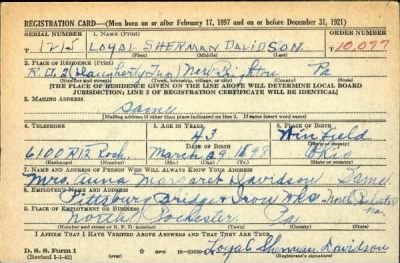 REGISTRATION CARD—(Men born on or after February 17, 1897 and on or before December 31, 1921)
SERIAL NUMBER 1. NAME (Print) ORDER NUMBER
U 1215 LOYAL SHERMAN DAVIDSON 10,077
2. PLACE OF RESIDENCE (Print)
R.D. 2 (Daugherty Twp) New Brighton Pa
[THE PLACE OF RESIDENCE GIVEN ON THE LINE ABOVE WILL DETERMINE LOCAL BOARD
JURISDICTION; LINE 2 OF REGISTRATION CERTIFICATE WILL BE IDENTICAL]
3. MAILING ADDRESS
Same
[Mailing address if other than place indicated on line 2. If same insert word same]
4. TELEPHONE 5. AGE IN YEARS 6. PLACE OF BIRTH
43 Winfield
DATE OF BIRTH
6100 R12 Roch. March 29 1898
7. NAME AND ADDRESS OF PERSON WHO WILL ALWAYS KNOW YOUR ADDRESS
Mrs. Anna Margaret Davidson Same
8. EMPLOYER'S NAME AND ADDRESS
Pittsburg Bridge & Iron Wks North Rochester Pa.
9. PLACE OF EMPLOYMENT OR BUSINESS
North Rochester Pa.
I AFFIRM THAT I HAVE VERIFIED ABOVE ANSWERS AND THAT THEY ARE TRUE.
D. S. S. Form 1
(Revised 1-1-42)
Loyal Sherman Davidson
(Registrant's signature)